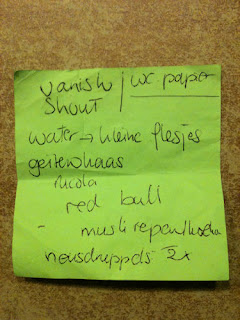 vanish / wc papier
shout
water → kleine flesjes
geitenkaas
ricola
red bull
- musli repen
neusdruppels 2x